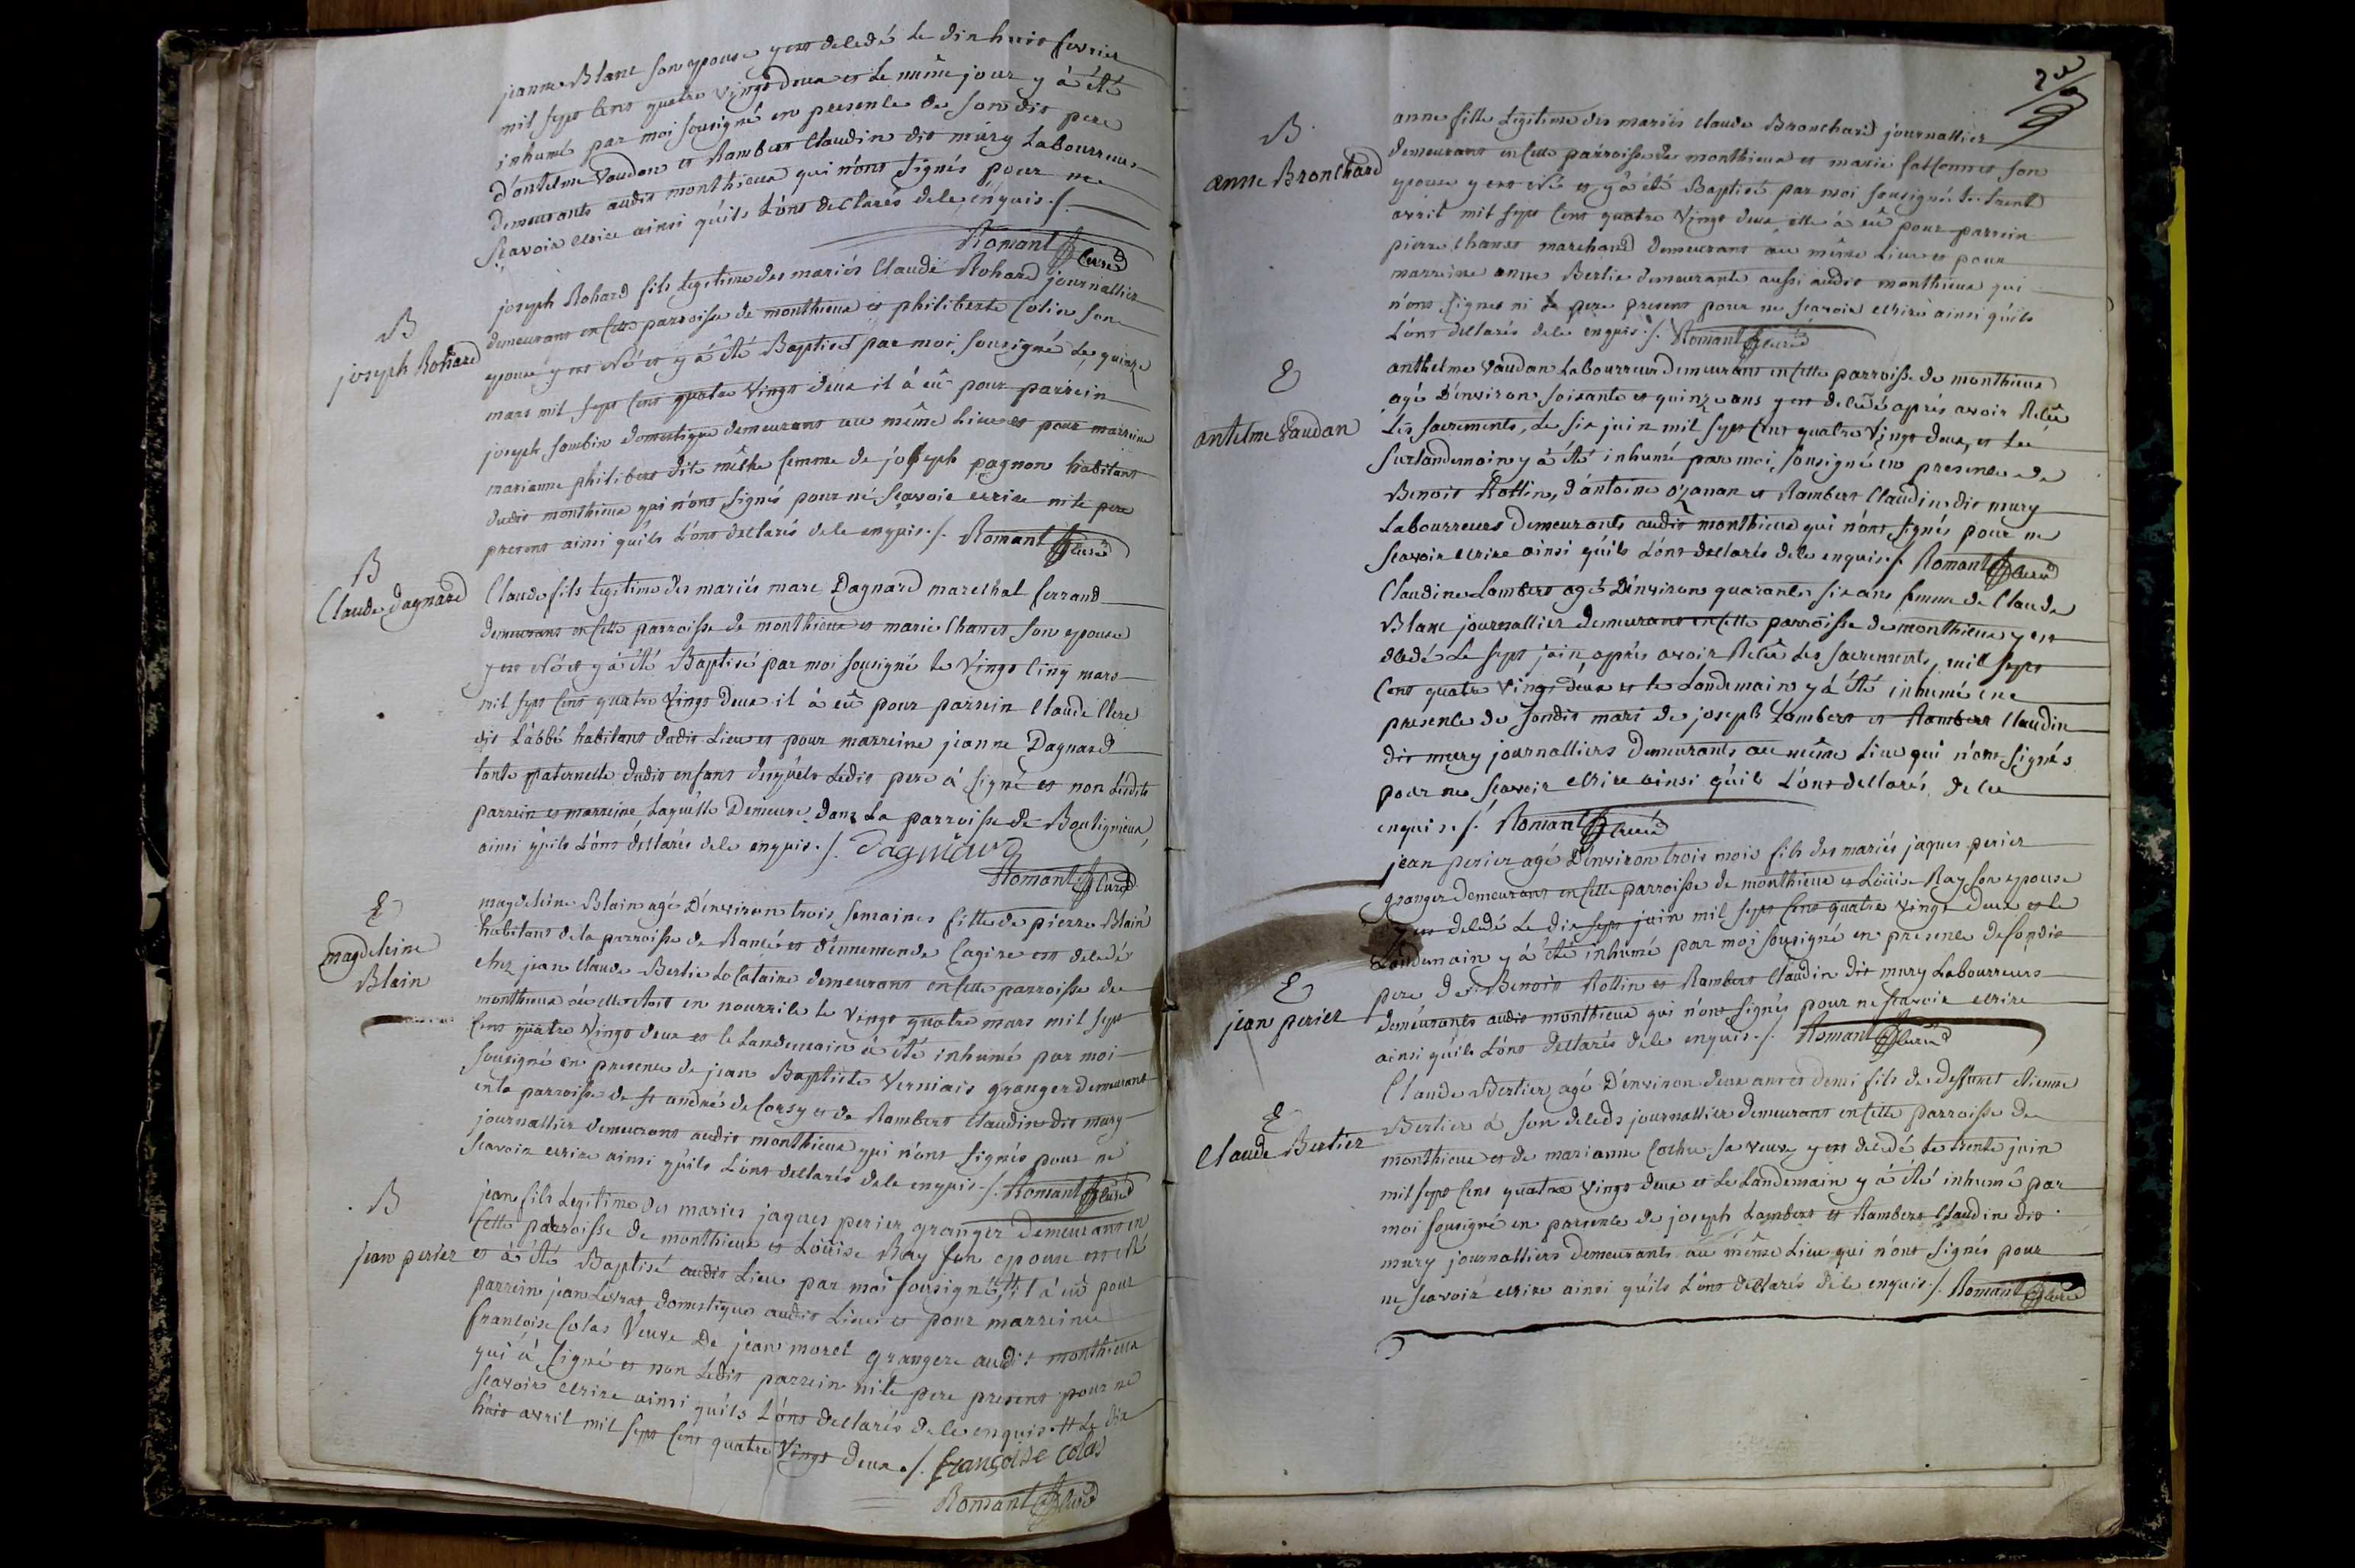 jeanne Blanc son epouse y est decedé le dix huit fevrier
mil sept cent quatre vingt deux et le même jour y à été
inhumé par moi sousigné en presence de son dit pere
d'antelme Vaudan et Rambert Claudin dit mury Labourreurs
demeurants audit monthieux qui n'ont signés pour ne
sçavoir ecrire ainsi qu'ils L'ont declarés de ce enquis ./.
Romant curé
B
joseph Rohard
joseph Rohard fils Legitime des mariés Claude Rohard journallier
demeurant en cette parroisse de monthieux et philiberte Colin son
epouse y est Né et y à été Baptisé par moi sousigné Le quinze
mars mil sept cent quatre vingt deux il à eû pour parrein
joseph Sombin domestique demeurant au même Lieu et pour marreine
marianne philibert dite femme de joseph pagnon habitant
dudit monthieux qui n'ont signés pour ne sçavoir ecrire ni le pere
present ainsi qu'ils L'ont declarés de ce enquis ./. Romant curé
B
Claude Dagnard
Claude fils Legitime des mariés marc Dagnard marechal ferrand
demeurant en cette parroisse de monthieux et marie Chanet son epouse
y est Né et y à été Baptisé par moi sousigné le vingt cinq mars
mil sept cent quatre vingt deux il à eû pour parrein Claude Clerc
dit L'abbé habitant dudit Lieu et pour marreine jeanne Dagnard
tante paternelle dudit enfant desquels Ledit pere à signé et non Lesdits
parrein et marreine, Laquelle Demeure dans La parroisse de Bouligneux,
ainsi qu'ils L'ont declarés de ce enquis ./. Dagniard
Romant curé
E
magdeleine
Blain
magdeleine Blain agé D'environ trois semaines fille de pierre Blain
habitant de la parroisse de Rancé et d'ennemonde Cagire est decedé
chez jean claude Berlie Locataire demeurant en cette parroisse de
monthieux où elle etoit en nourrice le vingt quatre mars mil sept
cent quatre vingt deux et le Landemain à été inhumé par moi
sousigné en presence de jean Baptiste Verniais granger demeurant
en la parroisse de st andré de Corsy et de Rambert Claudin dit mury
journallier demeurant audit monthieux qui n'ont signés pour ne
sçavoir ecrire ainsi qu'ils L'ont declarés de ce enquis ./. Romant curé
B
jean perier
jean fils Legitime des mariés jaques perier granger Demeurant en
cette parroisse de monthieux et Loüise Ray son epouse est Né
et à été Baptisé audit Lieu par moi sousigné # il à eû pour
parrein jean Levrat domestique audit Lieu et pour marreine
francoise Colas Veuve De jean morel grangere audit monthieux
qui à signé et non Ledit parrein ni le pere present pour ne
sçavoir ecrire ainsi qu'ils L'ont declarés de ce enquis. # Le dix
huit avril mil sept cent quatre vingt deux ./. françoise colas
Romant curé
B
anne Bronchard
anne fille Legitime des mariés claude Bronchard journallier
demeurant en cette parroisse de monthieux et marie son
epouse y est Né et y à été Baptisé par moi sousigné le trente
avril mil sept cent quatre vingt deux elle à eû pour parrein
pierre Chanet marchand demeurant au même Lieu et pour
marreine anne Berlie demeurante aussi audit monthieux qui
n'ont signés ni le pere present pour ne sçavoir ecrire ainsi qu'ils
L'ont declarés de ce enquis ./. Romant curé
E
antelme Vaudan
anthelme Vaudan Labourreur demeurant en cette parroisse de monthieux
agé D'environ soixante et quinze ans y est decedé aprés avoir Recû
Les sacrements, Le six juin mil sept cent quatre vingt deux, et Le
surlandemain y à été inhumé par moi, sousigné en presence de
Benoit Rollin, d'antoine ojanan et Rambert Claudin dit mury
Labourreurs Demeurants audit monthieux qui n'ont signés pour ne
sçavoir ecrire ainsi qu'ils L'ont declarés de ce enquis ./. Romant curé
Claudine Lambert agé D'environ quarante six ans femme de Claude
Blanc journallier demeurant en cette parroisse de monthieux y est
decedé Le sept juin, aprés avoir Recû Les sacrements, mil sept
cent quatre vingt deux et le Landemain y à été inhumé en
presence de sondit mari de joseph Lambert et Rambert Claudin
dit mury journalliers Demeurants au même Lieu qui n'ont signés
pour ne sçavoir ecrire ainsi qu'ils L'ont declarés de ce
enquis ./. Romant curé
E
jean perier
jean perier agé D'environ trois mois fils des mariés jaques perier
granger demeurant en cette parroisse de monthieux et Loüise Ray son epouse
y est decedé Le dix sept juin mil sept cent quatre vingt deux et le
Landemain y à été inhumé par moi sousigné en presence de sondit
pere de Benoit Rollin et Rambert Claudin dit mury Labourreurs
demeurants audit monthieux qui n'ont signés pour ne sçavoir ecrire
ainsi qu'ils L'ont declarés de ce enquis ./. Romant curé
E
Claude Bertier
Claude Bertier, agé D'environ deux ans et demi fils de deffunt etienne
Bertier à son deceds journallier demeurant en cette parroisse de
monthieux et de marianne Cochu sa veuve y est decedé le trente juin
mil sept cent quatre vingt deux et Le Landemain y à été inhumé par
moi sousigné en presence de joseph Lambert et Rambert Claudin dit
mury journalliers demeurants au même Lieu qui n'ont signés pour
ne sçavoir ecrire ainsi qu'ils L'ont declarés de ce enquis ./. Romant curé